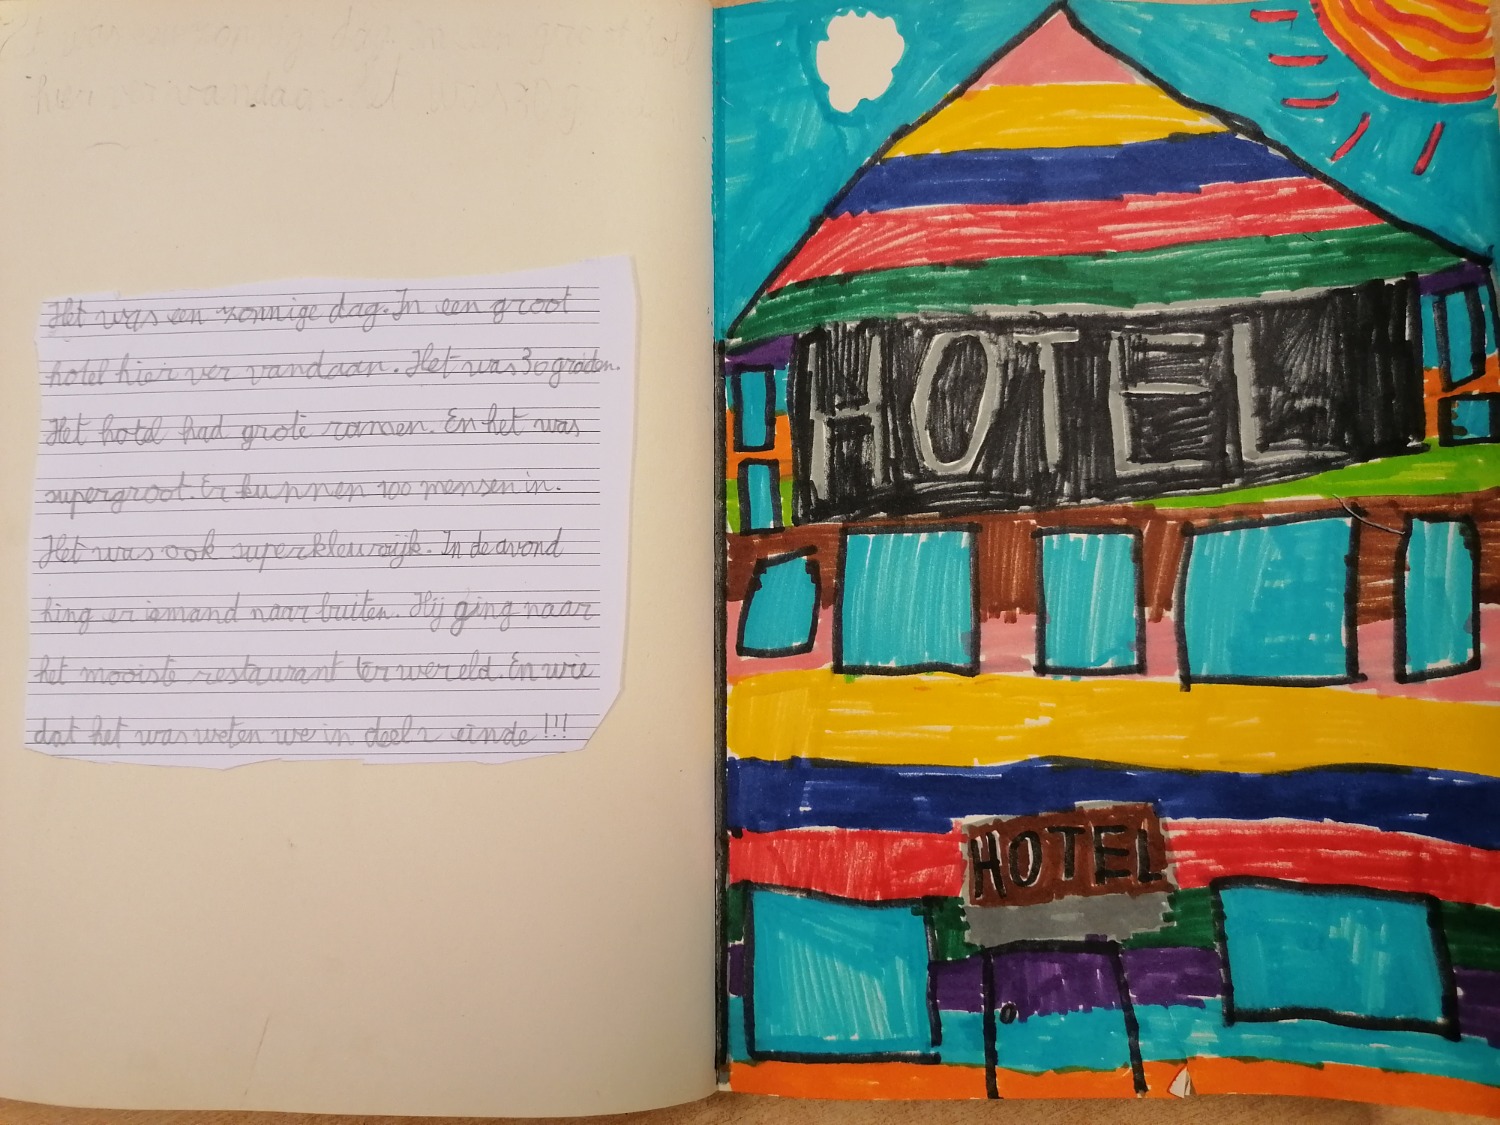 hier ver vandaan. Het was
Het was een zonnige dag. In een groot
hotel hier ver vandaan. Het was 30 graden.
Het hotel had grote ramen. En het was
supergroot. Er kunnen 100 mensen in.
Het was ook superkleurijk. In de avond
hing er iemand naar buiten. Hij ging naar
het mooiste restaurant ter wereld. En wie
dat het was weten we in deel 2 einde!!!
HOTEL
HOTEL